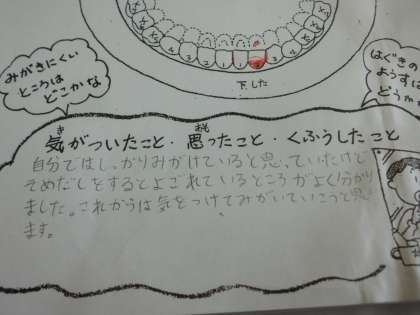 下した
みがきにくい
ところは
どこかな
はぐきの
ようすは
気がついたこと・思ったこと・くふうしたこと
自分ではしっかりみがけていると思っていたけど
そめだしをするとよごれているところがよく分かり
ました。これからは気をつけてみがいていこうと思い
ます。